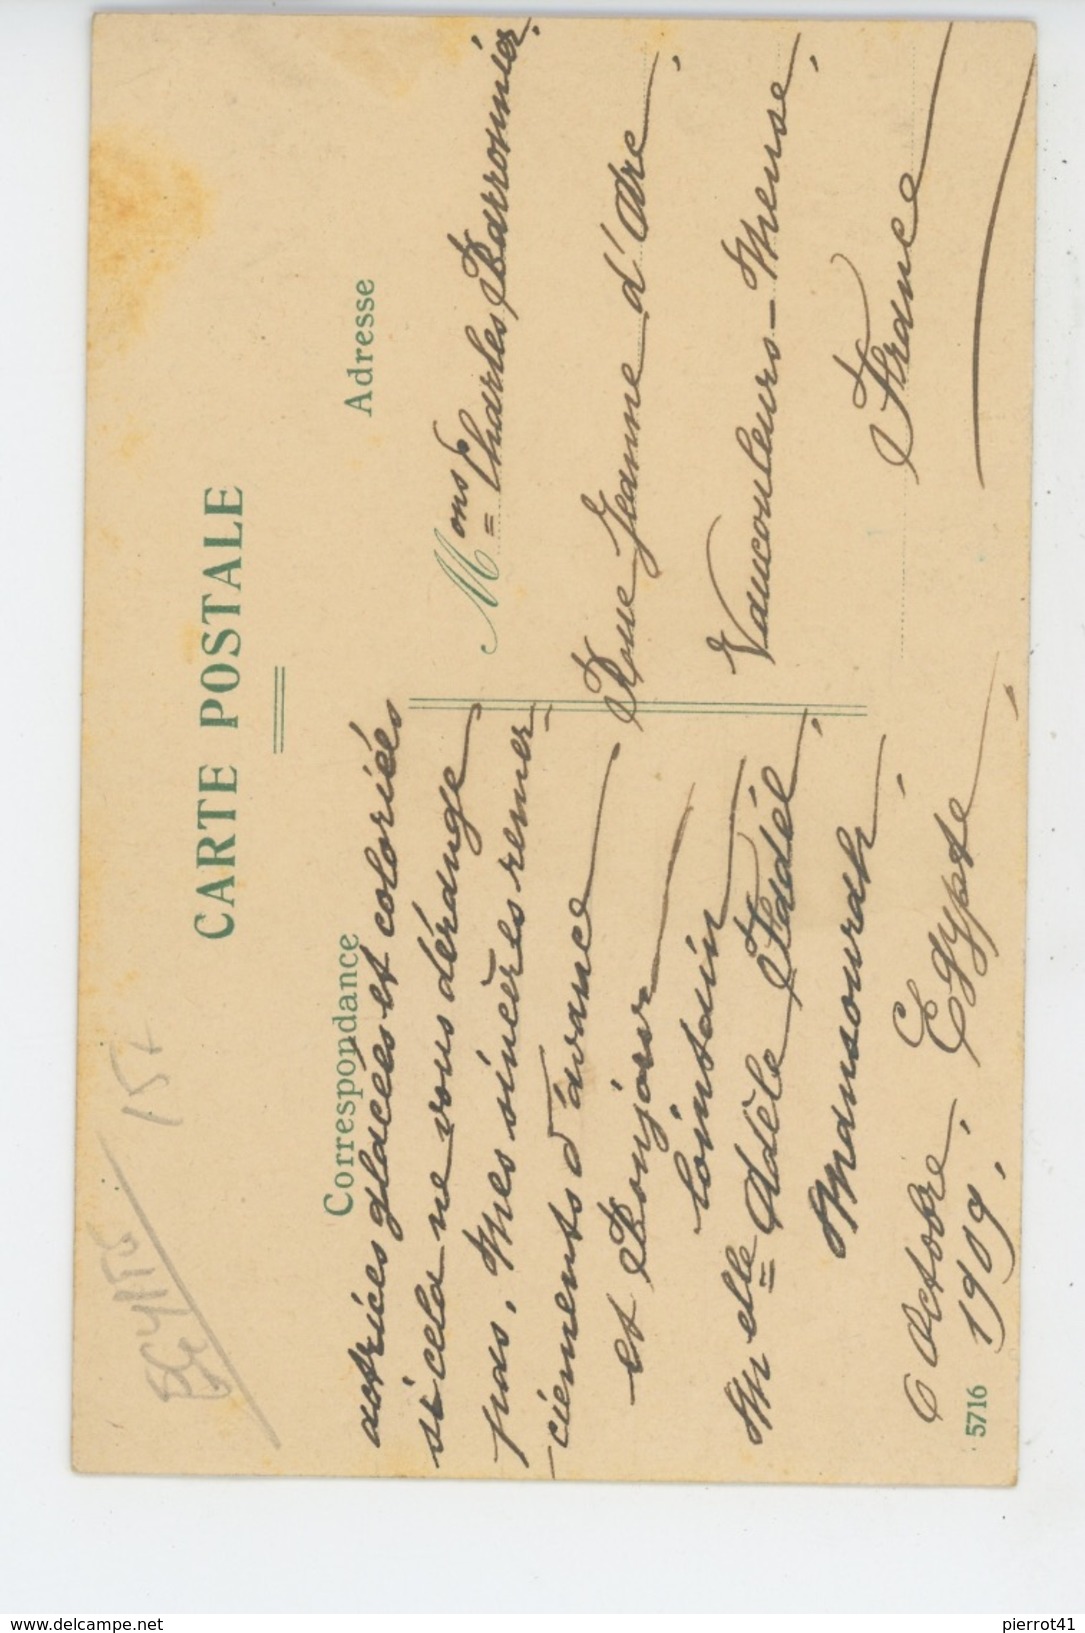 EGYPTE
15+
CARTE POSTALE
Correspondance
Adresse
actrices glacées et coloriées
si cela ne vous dérange
pas. Mes sincères remer
ciements d'avance
et Bonjour
lointain
Melle Adèle Fadél,
Mansourah,
Octobre, Egypte
1909.
Mons Charles Barronnier,
Rue Jeanne d'Arc,
Vaucouleurs - Meuse,
France
5716
delcampe.net
pierrot41